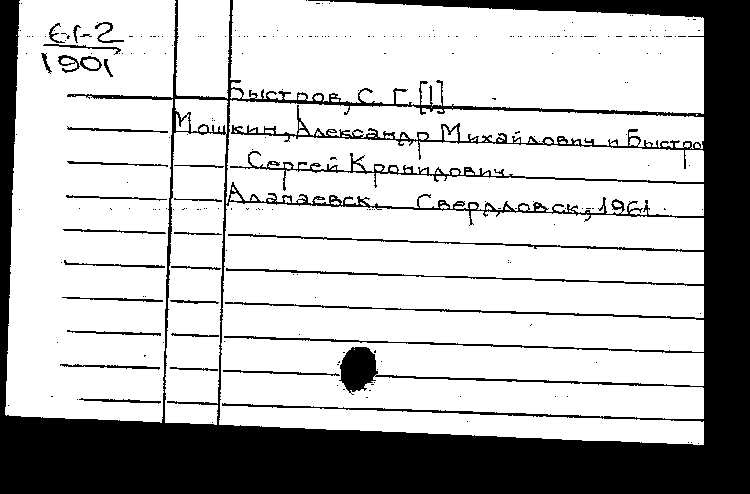 61-2
1901
Быстров, С. Г. [!]
Мошкин, Александр Михайлович и Быстро
Сергей Кронидович.
Алапаевск. Свердловск, 1961.